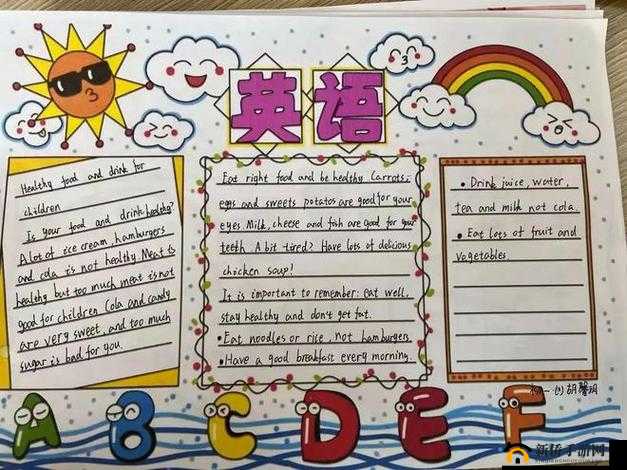 英语
Healthy food and drink for
children
Is your food and drink healthy?
A lot of ice cream, hamburgers
and cola is not healthy. Meat is
healthy but too much meat is not
good for children. Cola and candy
are very sweet, and too much
sugar is bad for you.
Eat right food and be healthy. Carrots,
eggs and sweets potatos are good for your
eyes. Milk, cheese and fish are good for your
teeth. A bit tired? Have lots of delicious
chicken soup!
It is important to remember: eat well,
stay healthy and don't get fat.
• Eat noodles or rice, not hamburgers.
• Have a good breakfast every morning.
• Drink juice, water,
tea and milk not cola.
• Eat lots of fruit and
vegetables
胡馨
A B C D E F
手游网